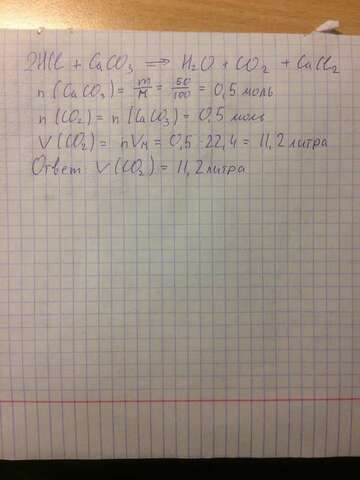 2HCl + CaCO₃ ⟹ H₂O + CO₂ + CaCl₂
n (CaCO₃) = m/M = 50/100 = 0,5 моль
n (CO₂) = n (CaCO₃) = 0,5 моль
V (CO₂) = nVм = 0,5 · 22,4 = 11,2 литра
Ответ V (CO₂) = 11,2 литра